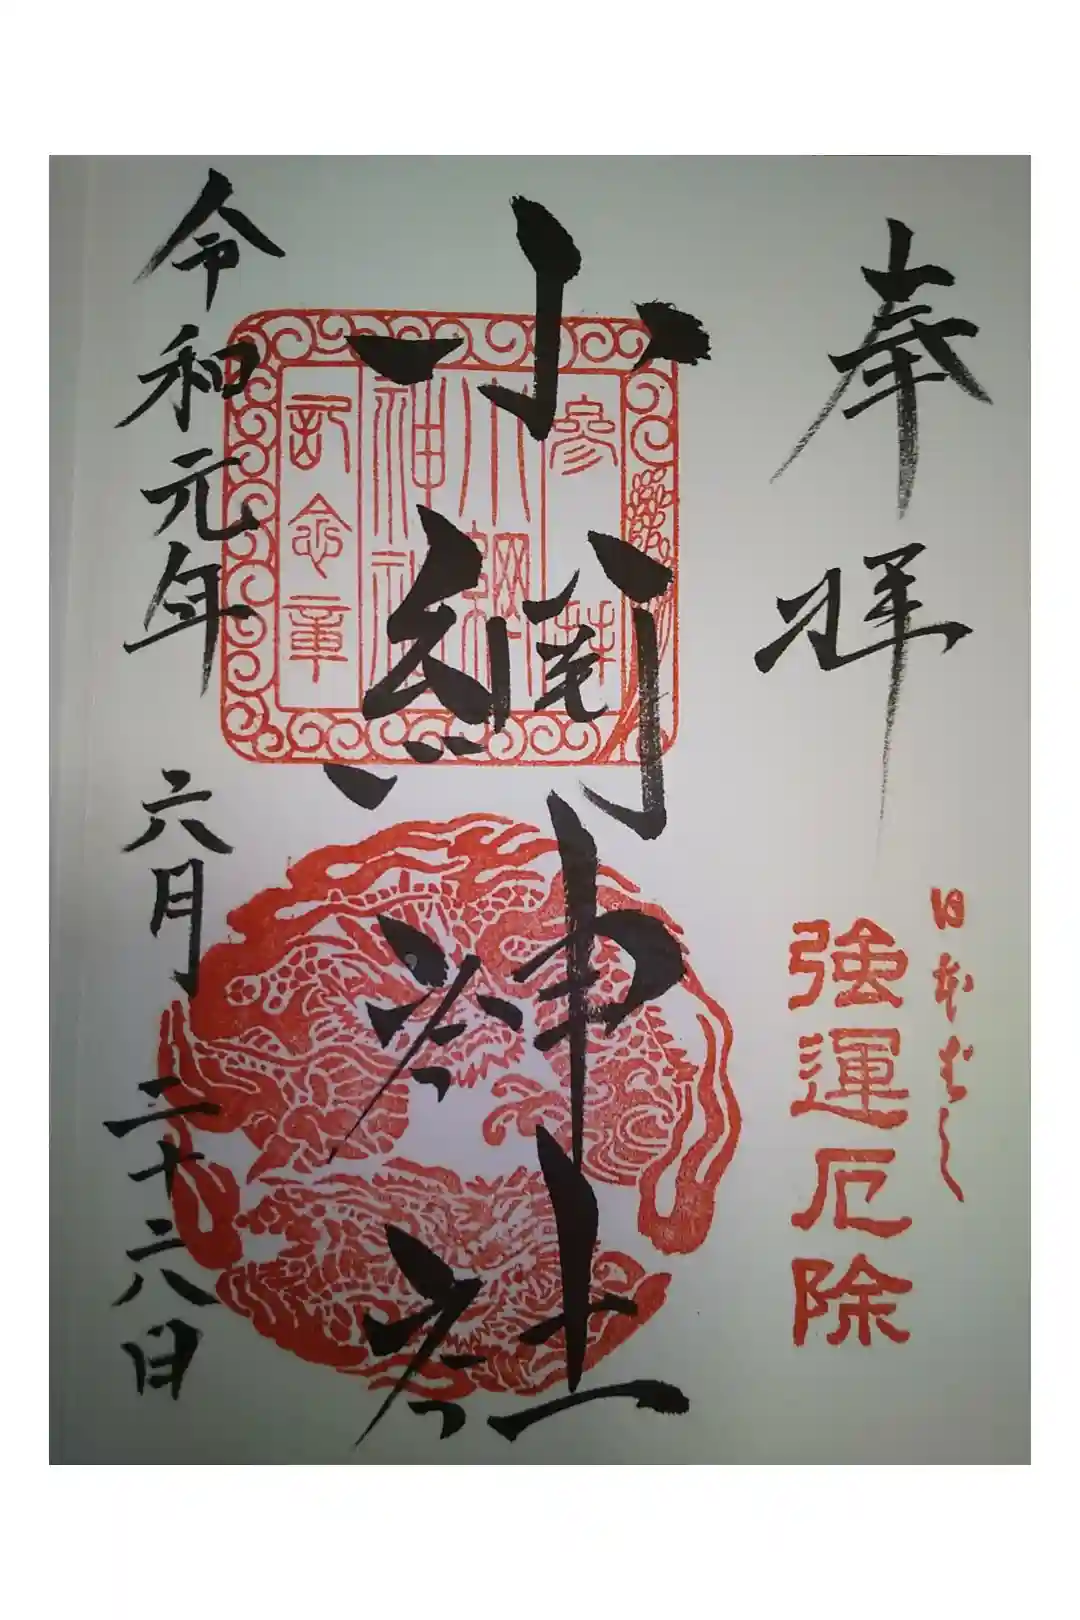 奉拝
日本ばし
強運厄除
小網神社
参拝
小網神社
記念章
令和元年 六月 二十六日